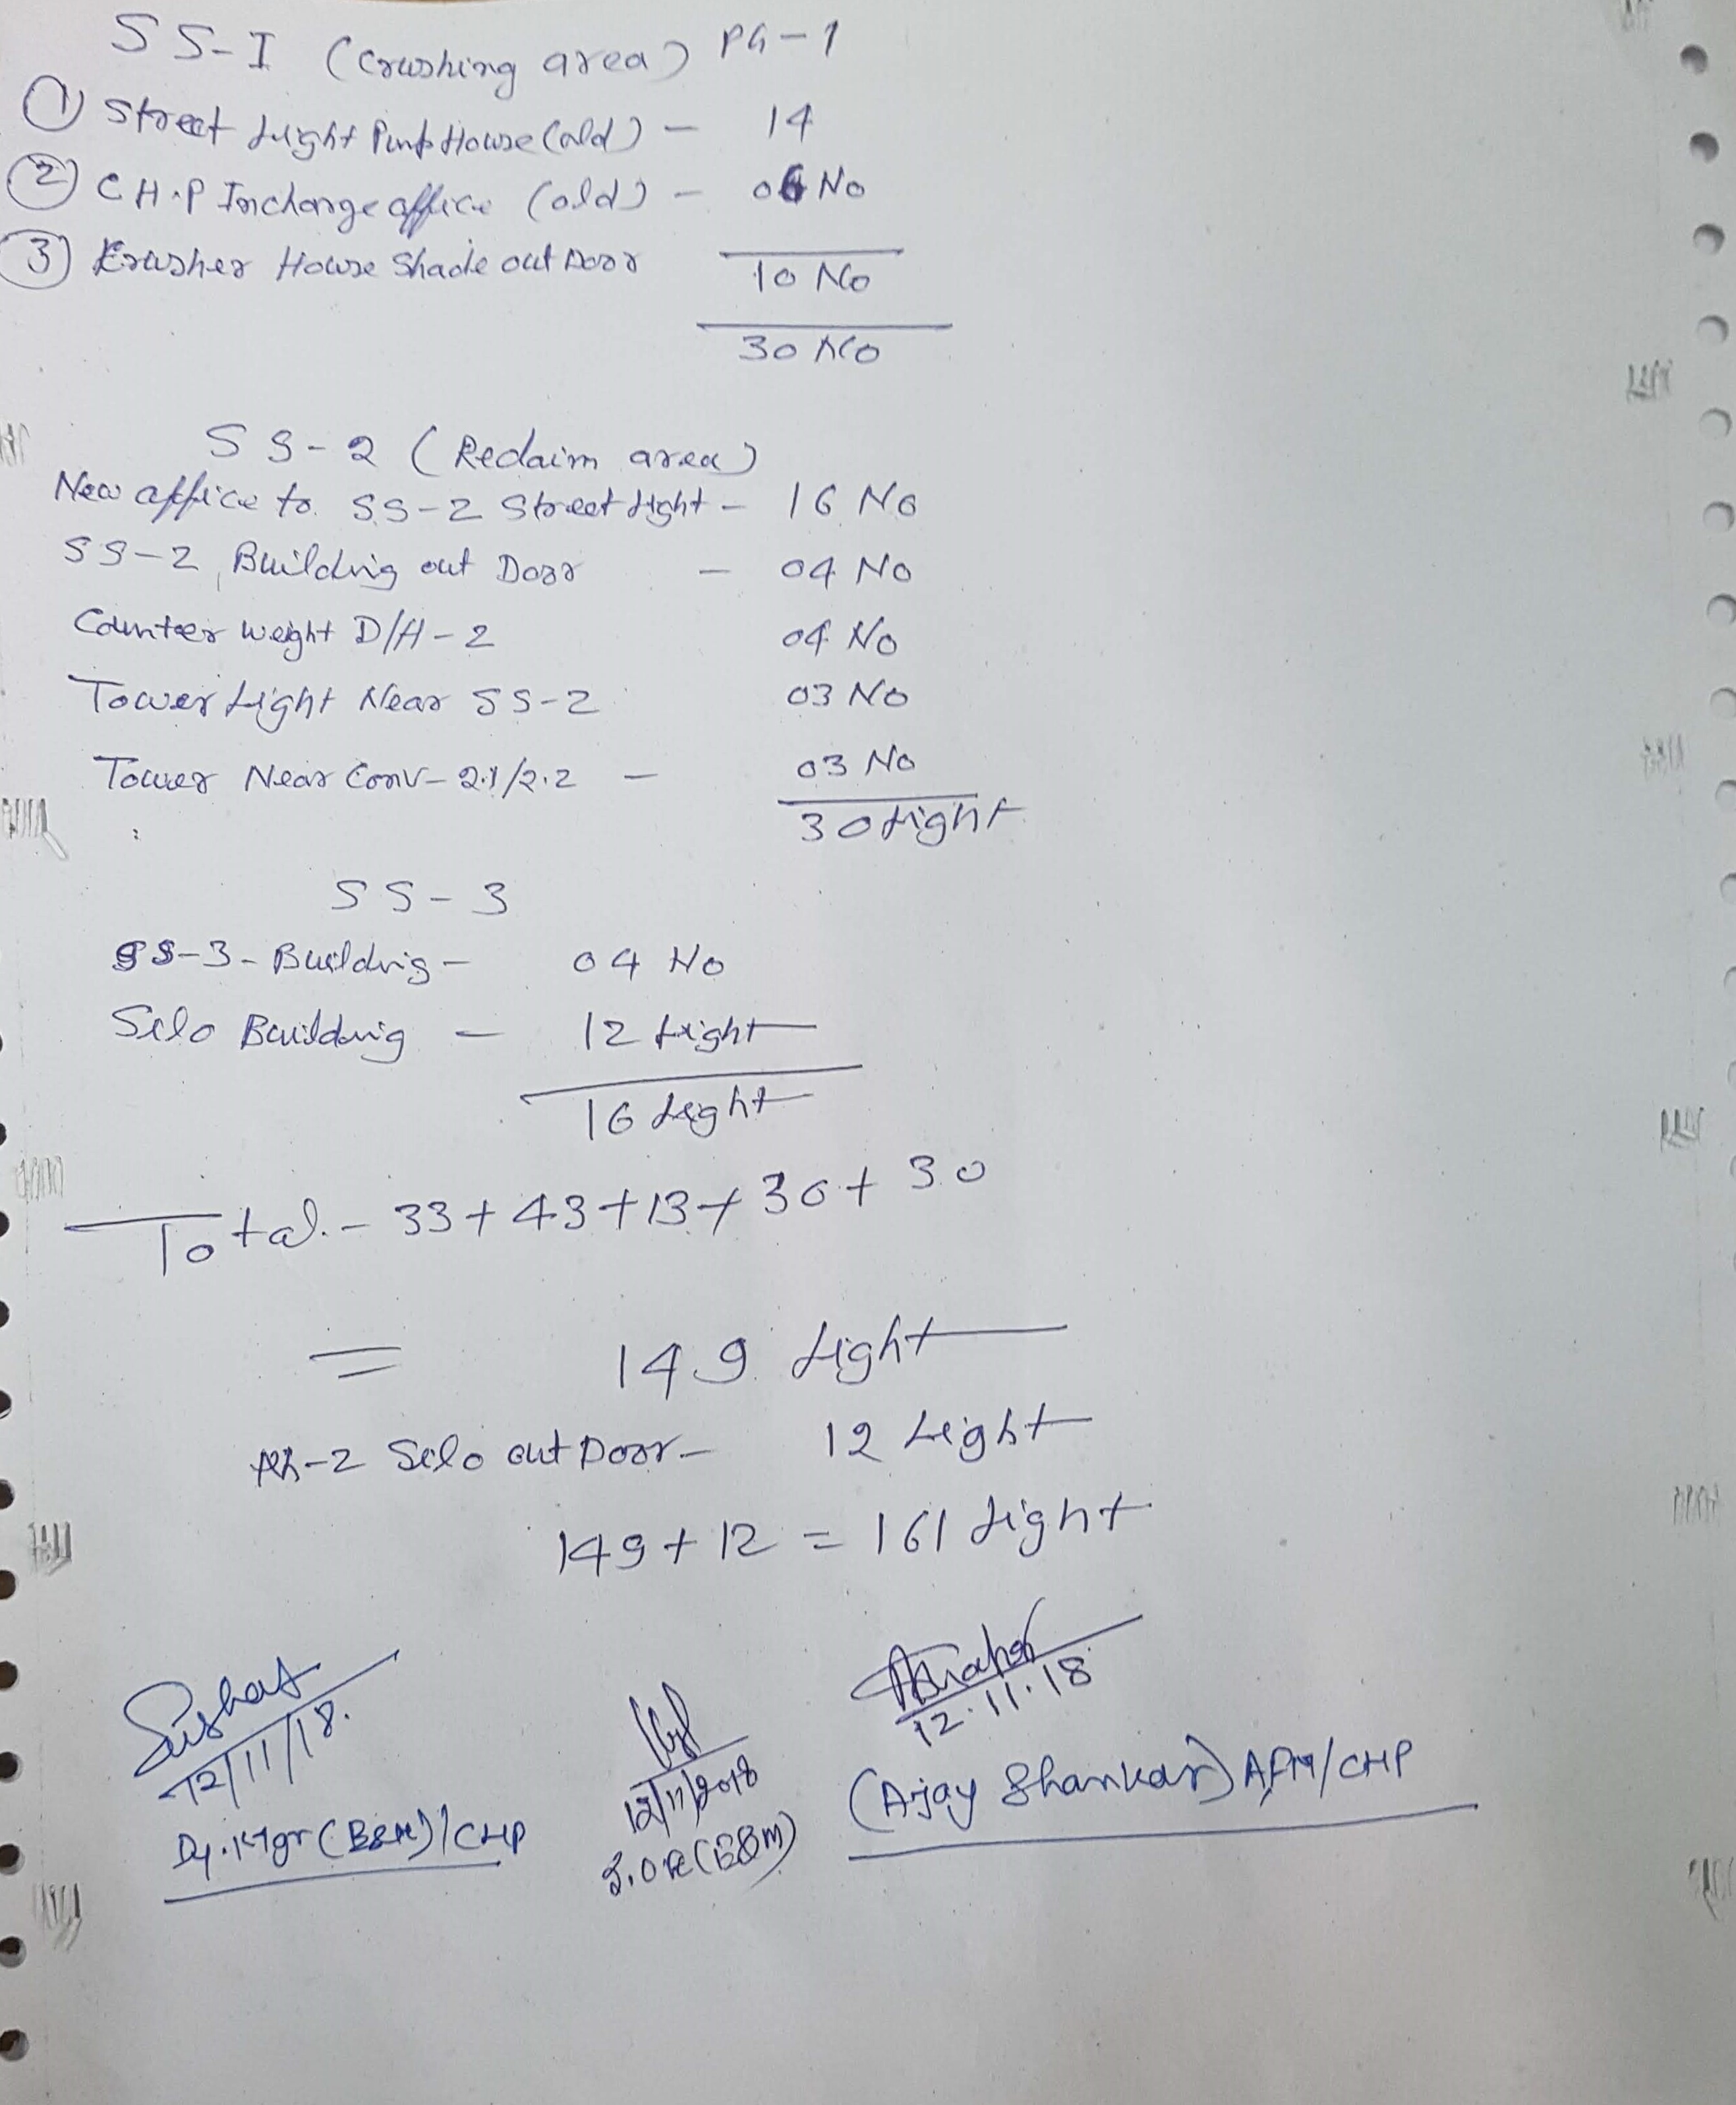 SS-I (Crushing area) PG-1
① Street Light Pump House (old) - 14
② C.H.P Incharge office (old) - 06 No
③ Krusher House Shade out Door 10 No
30 No
SS-2 (Reclaim area)
New office to SS-2 Street Light - 16 No
SS-2 Building out Door - 04 No
Counter Weight D/H-2 04 No
Tower Light Near SS-2 03 No
Tower Near Conv-2.1/2.2 - 03 No
30 Light
SS-3
SS-3-Building- 04 No
Silo Building - 12 Light
16 Light
Total - 33+43+13+30+30
= 149 Light
-2 Silo out Door- 12 Light
149+12 = 161 Light
12/11/18.
12/11/2018
12.11.18
Dy.Mgr (B&M)/CHP
(Ajay Shankar) AFM/CHP